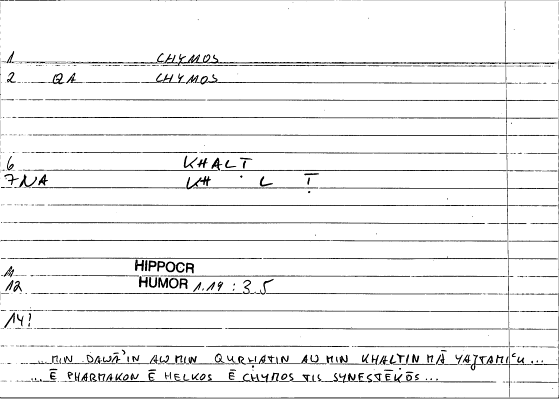 1 CHYMOS
2 QA CHYMOS
6 KHALT
7 NA KH . L Ṭ
11 HIPPOCR
12 HUMOR 1.19 : 3 5
14!
...MIN DAWĀ'IN AW MIN QURḤATIN AW MIN KHALṬIN MĀ YAJTAMIʿU...
...Ē PHARMAKON Ē HELKOS Ē CHYMOS TIS SYNESTĒKŌS...